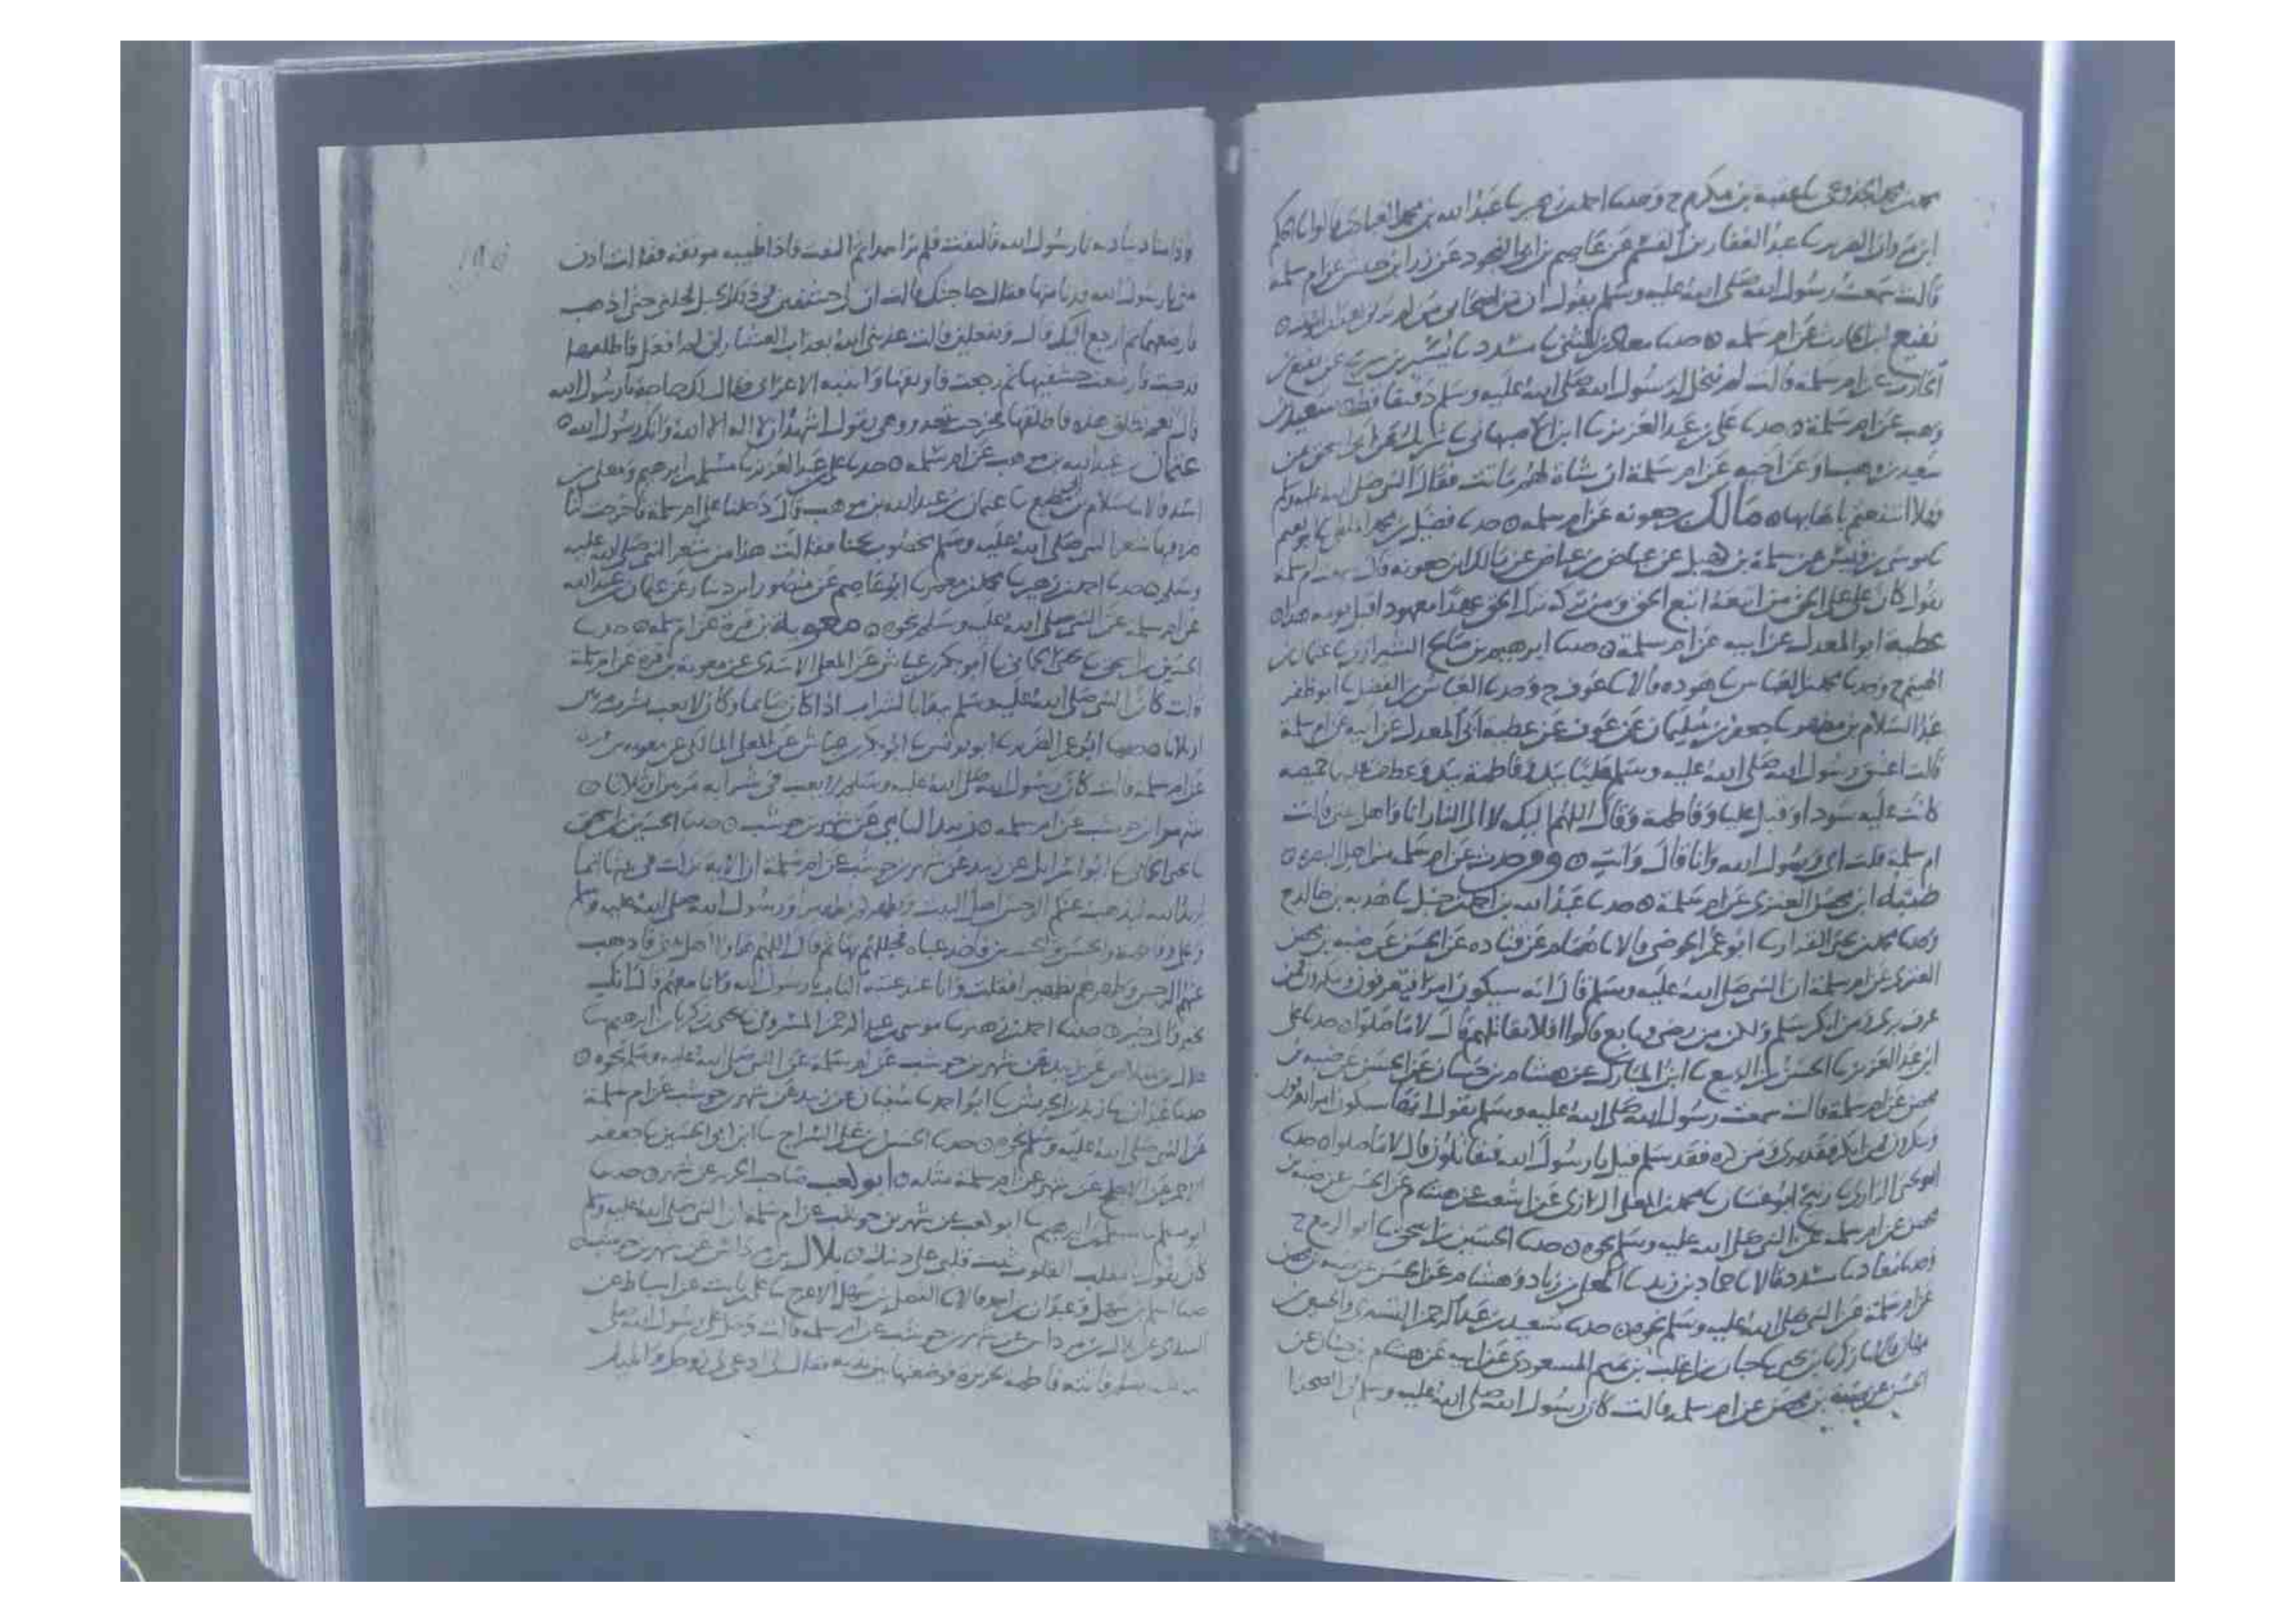 محمد بن محمد الجذوعي نا عقبة بن مكرم ح وحدثنا احمد بن زهير نا عبد الله بن محمد العبادي قالوا نا الحكم
ابن مروان الضرير نا عبد الغفار بن القسم عن عاصم بن ابي النجود عن زر ابن حبيش عن ام سلمة
قالت سمعت رسول الله صلى الله عليه وسلم يقول ان من اصحابي من لم
نفيع ابن الحارث عن ام سلمه ۝ حدثنا معاذ بن المثنى نا مسدد نا بشر بن عن نفيع بن
الحارث عن ام سلمه قالت لم ينخل لرسول الله صلى الله عليه وسلم دقيقا قط ۝ سعيد بن
وهب عن ام سلمة ۝ حدثنا علي بن عبد العزيز نا ابن الاصبهاني نا شريك عن ابي اسحق عن
سعيد بن وهب او عن اخيه عن ام سلمة ان شاة لهم ماتت فقال النبي صلى الله عليه وسلم
فهلا انتفعتم باهابها ۝ مالك بن جعونه عن ام سلمه ۝ حدثنا فضيل بن محمد الملطي نا ابو نعيم
نا موسى بن قيس عن سلمة بن كهيل عن عياض بن عياض عن مالك ابن جعونه قال سمعت ام سلمة
تقول كان علي على الحق من اتبعه اتبع الحق ومن تركه ترك الحق عهدا معهودا قبل يومه هذا ۝
عطية ابو المعدل عن ابيه عن ام سلمة ۝ حدثنا ابرهيم بن صالح الشيرازي نا عثمان بن
الهيثم ح وحدثنا محمد بن العباس نا هوده قالا نا عوف ح وحدثنا العباس بن الفضل نا ابو ظفر
عبد السلام بن مطهر نا جعفر بن سليمان عن عوف عن عطية ابي المعدل عن ابيه عن ام سلمة
قالت اعتنق رسول الله صلى الله عليه وسلم عليا بيد وفاطمة بيد وعطف عليها خميصه
كانت عليه سوداء وقبل عليا وفاطمة وقال اللهم اليك لا الى النار انا واهل بيتي قالت
ام سلمة قلت اي رسول الله وانا قال وانت ۝ عن ام سلمه من اهل البصره ۝
ضبه ابن محصن العنزي عن ام سلمة ۝ حدثنا عبد الله بن احمد بن حنبل نا هدبه بن خالد ح
وحدثنا محمد بن يحيى القزاز نا ابو عمر الحوضي قالا نا همام عن قتاده عن الحسن عن ضبه بن محصن
العنزي عن ام سلمة ان النبي صلى الله عليه وسلم قال انه سيكون امرا تعرفون وتنكرون فمن
عرف بري ومن انكر سلم ولكن من رضي وتابع قالوا افلا نقاتلهم قال لا ما صلوا ۝ حدثنا علي
ابن عبد العزيز نا الحسن بن الربيع نا ابن المبارك عن هشام بن حسان عن الحسن عن ضبه بن
محصن عن ام سلمة قالت سمعت رسول الله صلى الله عليه وسلم يقول سيكون امرا تعرفون
وتنكرون فمن انكر فقد بري ومن كره فقد سلم قيل يا رسول الله فنقاتلون قال لا ما صلوا ۝ حدثنا
ابو يحيى الرازي نا زنيج ابو غسان نا محمد بن المعلى الرازي عن اشعث عن هشام عن الحسن عن ضبه بن
محصن عن ام سلمه عن النبي صلى الله عليه وسلم نحوه ۝ حدثنا الحسين بن اسحق نا ابو الربيع ح
وحدثنا معاذ نا مسدد قالا نا حماد بن زيد نا المعلى بن زياد وهشام عن الحسن عن ضبه بن محصن
عن ام سلمة عن النبي صلى الله عليه وسلم نحوه ۝ حدثنا سعيد بن عبد الرحمن التستري والحسين بن
قالا نا زكريا بن يحيى نا حبان بن اغلب بن تميم المسعودي عن ابيه عن هشام بن حسان عن
الحسن عن ضبة بن محصن عن ام سلمه قالت كان رسول الله صلى الله عليه وسلم في الصحرا
واذا مناد يناديه يا رسول الله فالتفت فلم ير احدا ثم التفت فاذا ظبيه موثقة فقالت ادن
مني يا رسول الله فدنا منها فقال حاجتك قالت ان لي خشفين في ذلك الجبل فحلني حتى اذهب
فارضعهما ثم ارجع اليك قال وتفعلين قالت عذبني الله بعذاب العشار ان لم افعل فاطلقها
فذهبت فارضعت خشفيها ثم رجعت فاوثقها وانتبه الاعرابي فقال لك حاجة يا رسول الله
قال نعم تطلق هذه فاطلقها فخرجت تعدو وهي تقول اشهد ان لا اله الا الله وانك رسول الله ۝
عثمان بن عبد الله بن موهب عن ام سلمه ۝ حدثنا علي بن عبد العزيز نا مسلم بن ابرهيم ومعلى بن
اسد قالا نا سلام بن ابي مطيع نا عثمان بن عبد الله بن موهب قال دخلنا على ام سلمة فاخرجت لنا
شعرا النبي صلى الله عليه وسلم مخضوب بحنا فقالت هذا من شعر النبي صلى الله عليه
وسلم ۝ حدثنا احمد بن زهير نا محمد بن معمر نا ابو عاصم عن منصور ابن دينار عن عثمان بن عبد الله
عن ام سلمه عن النبي صلى الله عليه وسلم نحوه ۝ معوية بن قرة عن ام سلمه ۝ حدثنا
الحسين بن اسحق نا يحيى الحماني نا ابو بكر بن عياش عن المعلى الاسدي عن معوية بن قرة عن ام سلمة
قالت كان النبي صلى الله عليه وسلم اذا كان صائما وكان لا يعب يشرب مرتين
او ثلاثا ۝ حدثنا ابو نا ابو بكر بن عياش عن المعلى المالكي عن معويه بن قرة
عن ام سلمة قالت كان رسول الله صلى الله عليه وسلم لا يعب في شرابه مرتين او ثلاثا ۝
شهر بن حوشب عن ام سلمه ۝ زبيد اليامي عن شهر بن حوشب ۝ حدثنا الحسين بن اسحق
نا يحيى الحماني نا ابو اسرائيل عن زبيد عن شهر بن حوشب عن ام سلمة ان الايه نزلت في بيتها انما
يريد الله ليذهب عنكم الرجس اهل البيت ويطهركم تطهيرا ورسول الله صلى الله عليه وسلم
وعلي وفاطمة والحسن والحسين فاخذ عباه فجللهم بها ثم قال اللهم هاولا اهل بيتي فاذهب
عنهم الرجس وطهرهم تطهيرا فقلت وانا عند عتبة الباب يا رسول الله وانا معهم قال انك
بخير والى خير ۝ حدثنا احمد بن زهير نا موسى بن عبد الرحمن المسروقي نا يحيى بن زكريا بن ابرهيم نا
عن زبيد عن شهر بن حوشب عن ام سلمة عن النبي صلى الله عليه وسلم نحوه ۝
حدثنا عبدان نا زيد بن الحريش نا ابو احمد نا سفيان عن زبيد عن شهر بن حوشب عن ام سلمة
عن النبي صلى الله عليه وسلم نحوه ۝ حدثنا الحسن بن علي السراج نا ابن ابي الحسين نا جعفر
الاحمر عن الاجلح عن شهر عن ام سلمة مثله ۝ ابو كعب صاحب الحرير عن شهر ۝ حدثنا
ابو مسلم نا مسلم بن ابرهيم نا ابو كعب عن شهر بن حوشب عن ام سلمة ان النبي صلى الله عليه وسلم
كان يقول يا مقلب القلوب ثبت قلبي على دينك ۝ بلال بن مرداس عن شهر بن حوشب ۝
حدثنا اسلم بن سهل وعبدان بن احمد قالا نا الفضل بن سهل الاعرج نا علي بن ثابت عن اسباط عن
السدي عن بلال بن مرداس عن شهر بن حوشب عن ام سلمه قالت دخل علي رسول الله صلى
الله عليه وسلم فاتته فاطمه بخزيرة فوضعتها بين يديه فقال ادعي لي زوجك وابنيك